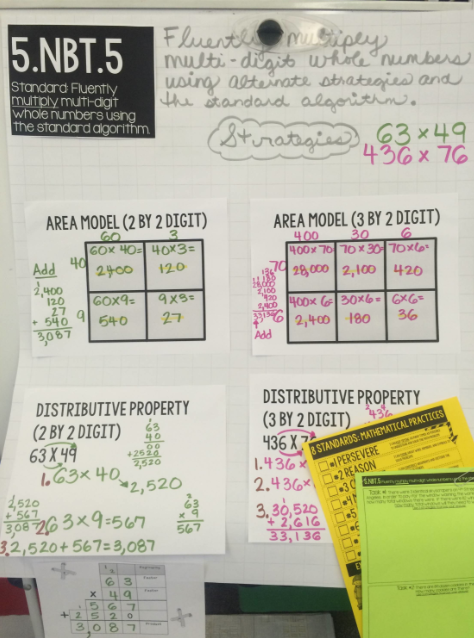 5.NBT.5
Standard: Fluently
multiply multi-digit
whole numbers using
the standard algorithm.
Fluently multiply
multi-digit whole numbers
using alternate strategies and
the standard algorithm.
Strategies
63 x 49
436 x 76
AREA MODEL (2 BY 2 DIGIT)
60 3
40
60x40= 40x3=
2400 120
9
60x9= 9x3=
540 27
Add
1
2,400
120
27
+ 540
3,087
AREA MODEL (3 BY 2 DIGIT)
400 30 6
70
400x70 70x30= 70x6=
28,000 2,100 420
6
400x6= 30x6= 6x6=
2,400 180 36
28,000
2,100
420
2,400
33,136
Add
DISTRIBUTIVE PROPERTY
(2 BY 2 DIGIT)
63 X 49
63
40
00
+2520
2,520
1. 63 x 40
2,520
2. 63 x 9 = 567
2
63
x 9
567
2,520
+ 567
3,087
3. 2,520 + 567 = 3,087
DISTRIBUTIVE PROPERTY
(3 BY 2 DIGIT)
436 X 7
436
1. 436 x
2. 436 x
3. 30,520
+ 2,616
33,136
8 STANDARDS: MATHEMATICAL PRACTICES
1 PERSEVERE
2 REASON
3
4
5
6
7
8
5.NBT.5
63
x 49
567
+ 2520
3,087